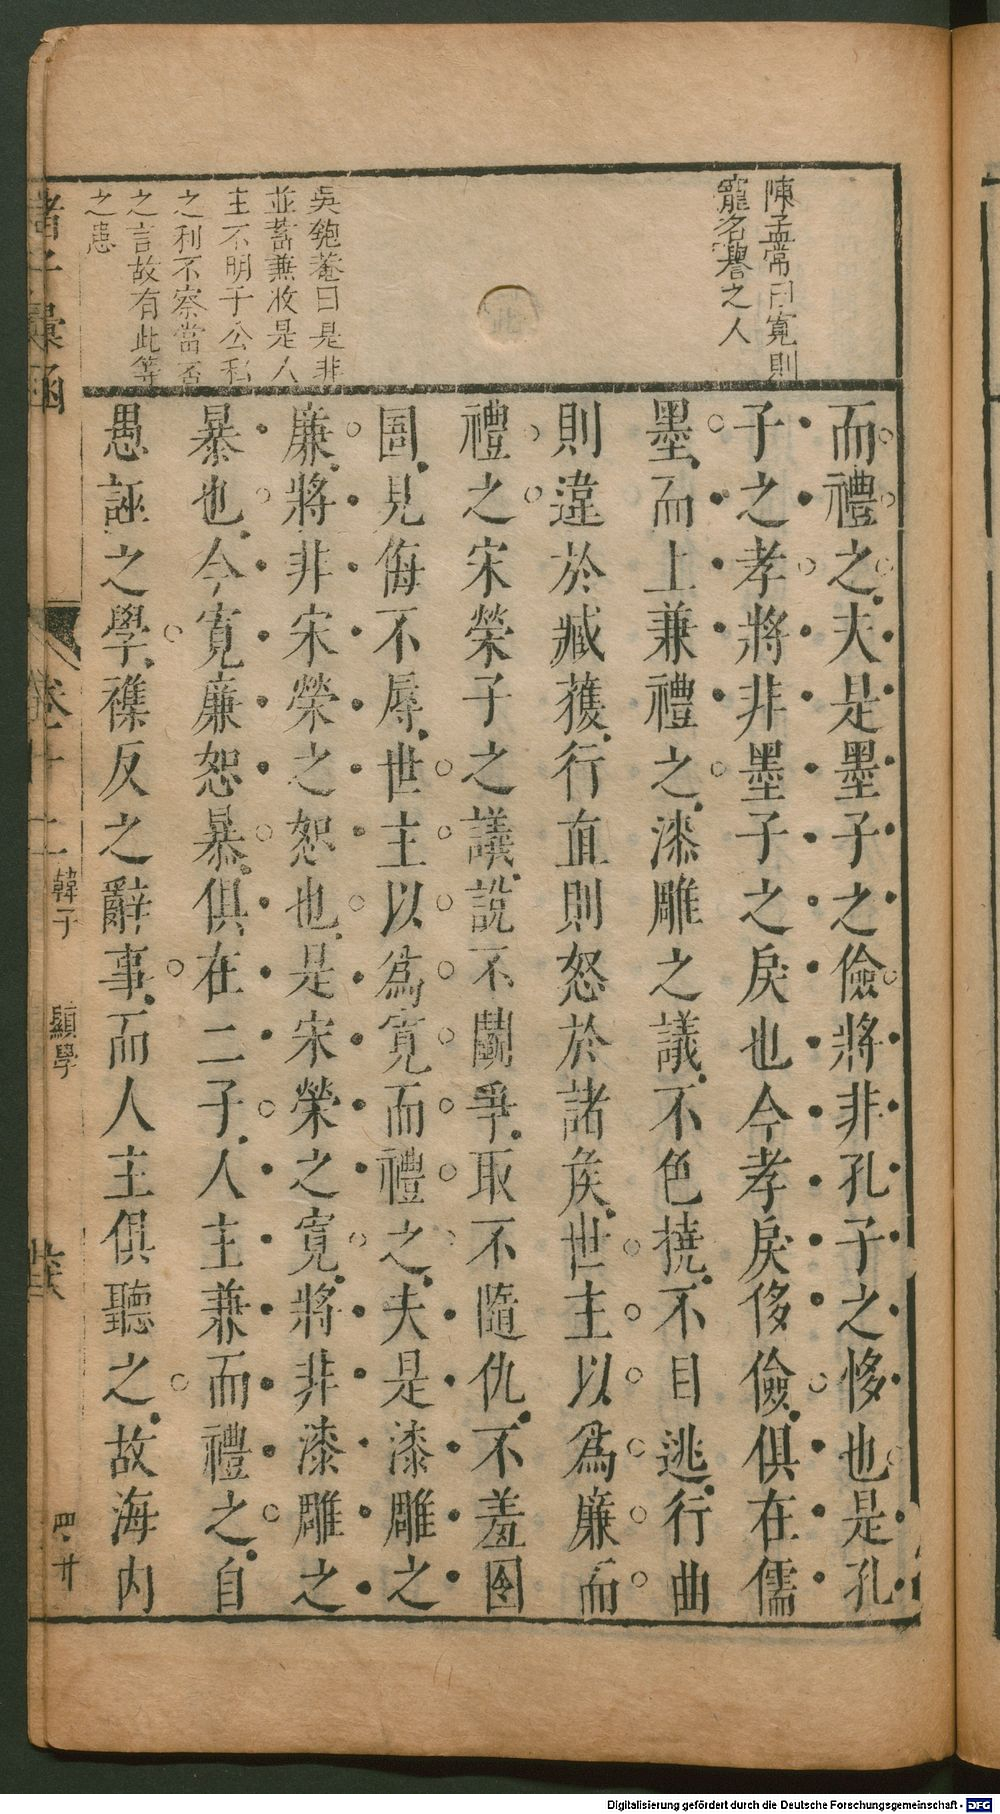 陳孟常曰寬則
寵名譽之人
吳匏菴曰是非
並蓄兼收是人
主不明于公私
之利不察當否
之言故有此等
之患
而禮之夫是墨子之儉將非孔子之侈也是孔
子之孝將非墨子之戾也今孝戾侈儉俱在儒
墨而上兼禮之漆雕之議不色撓不目逃行曲
則違於臧獲行直則怒於諸矦世主以爲廉而
禮之宋榮子之議說不鬬爭取不隨仇不羞囹
圄見侮不辱世主以爲寬而禮之夫是漆雕之
廉將非宋榮之恕也是宋榮之寬將非漆雕之
暴也今寬廉恕暴俱在二子人主兼而禮之自
愚誣之學襍反之辭事而人主俱聽之故海内
諸子彙函
卷十二
韓子
顯學
四廿
Digitalisierung gefördert durch die Deutsche Forschungsgemeinschaft - DFG